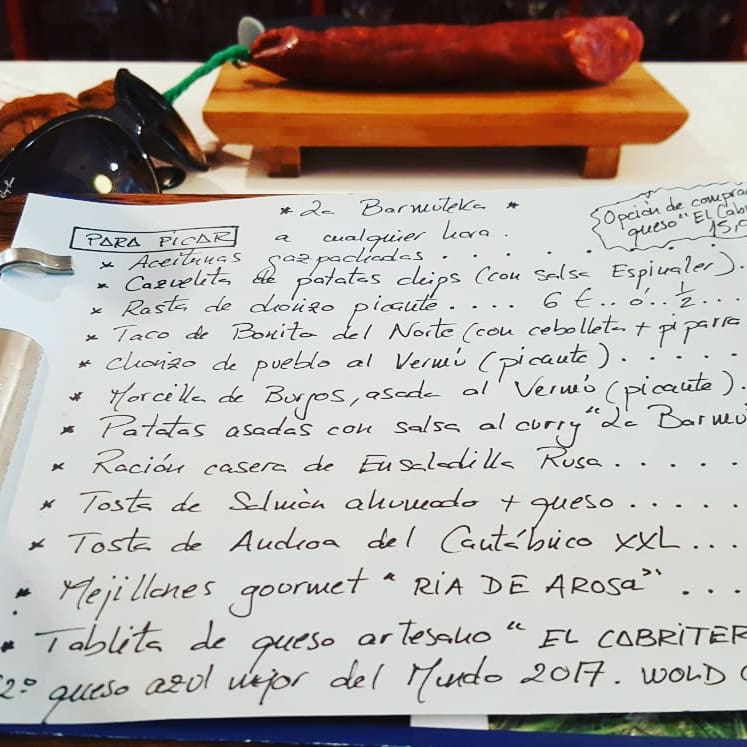 * La Barmuteka *
Opción de comprar
queso "El Cabri
15,
PARA PICAR a cualquier hora.
* Aceitunas gazpachadas . . . . . . .
* Cazuelita de patatas chips (con salsa Espinaler).
* Rasta de chorizo picante.... 6 €.. ó.. ½ ...
* Taco de Bonito del Norte (con cebolleta + piparra
* Chorizo de pueblo al Vermú (picante) . . . . .
* Morcilla de Burgos, asada al Vermú (picante) .
* Patatas asadas con salsa al curry "La Barmu
* Ración casera de Ensaladilla Rusa . . . . .
* Tosta de Salmón ahumado + queso . . . . .
* Tosta de Anchoa del Cantábrico XXL ...
* Mejillones gourmet "RIA DE AROSA" ...
* Tablita de queso artesano "EL CABRITER
2º queso azul mejor del Mundo 2017. WOLD C